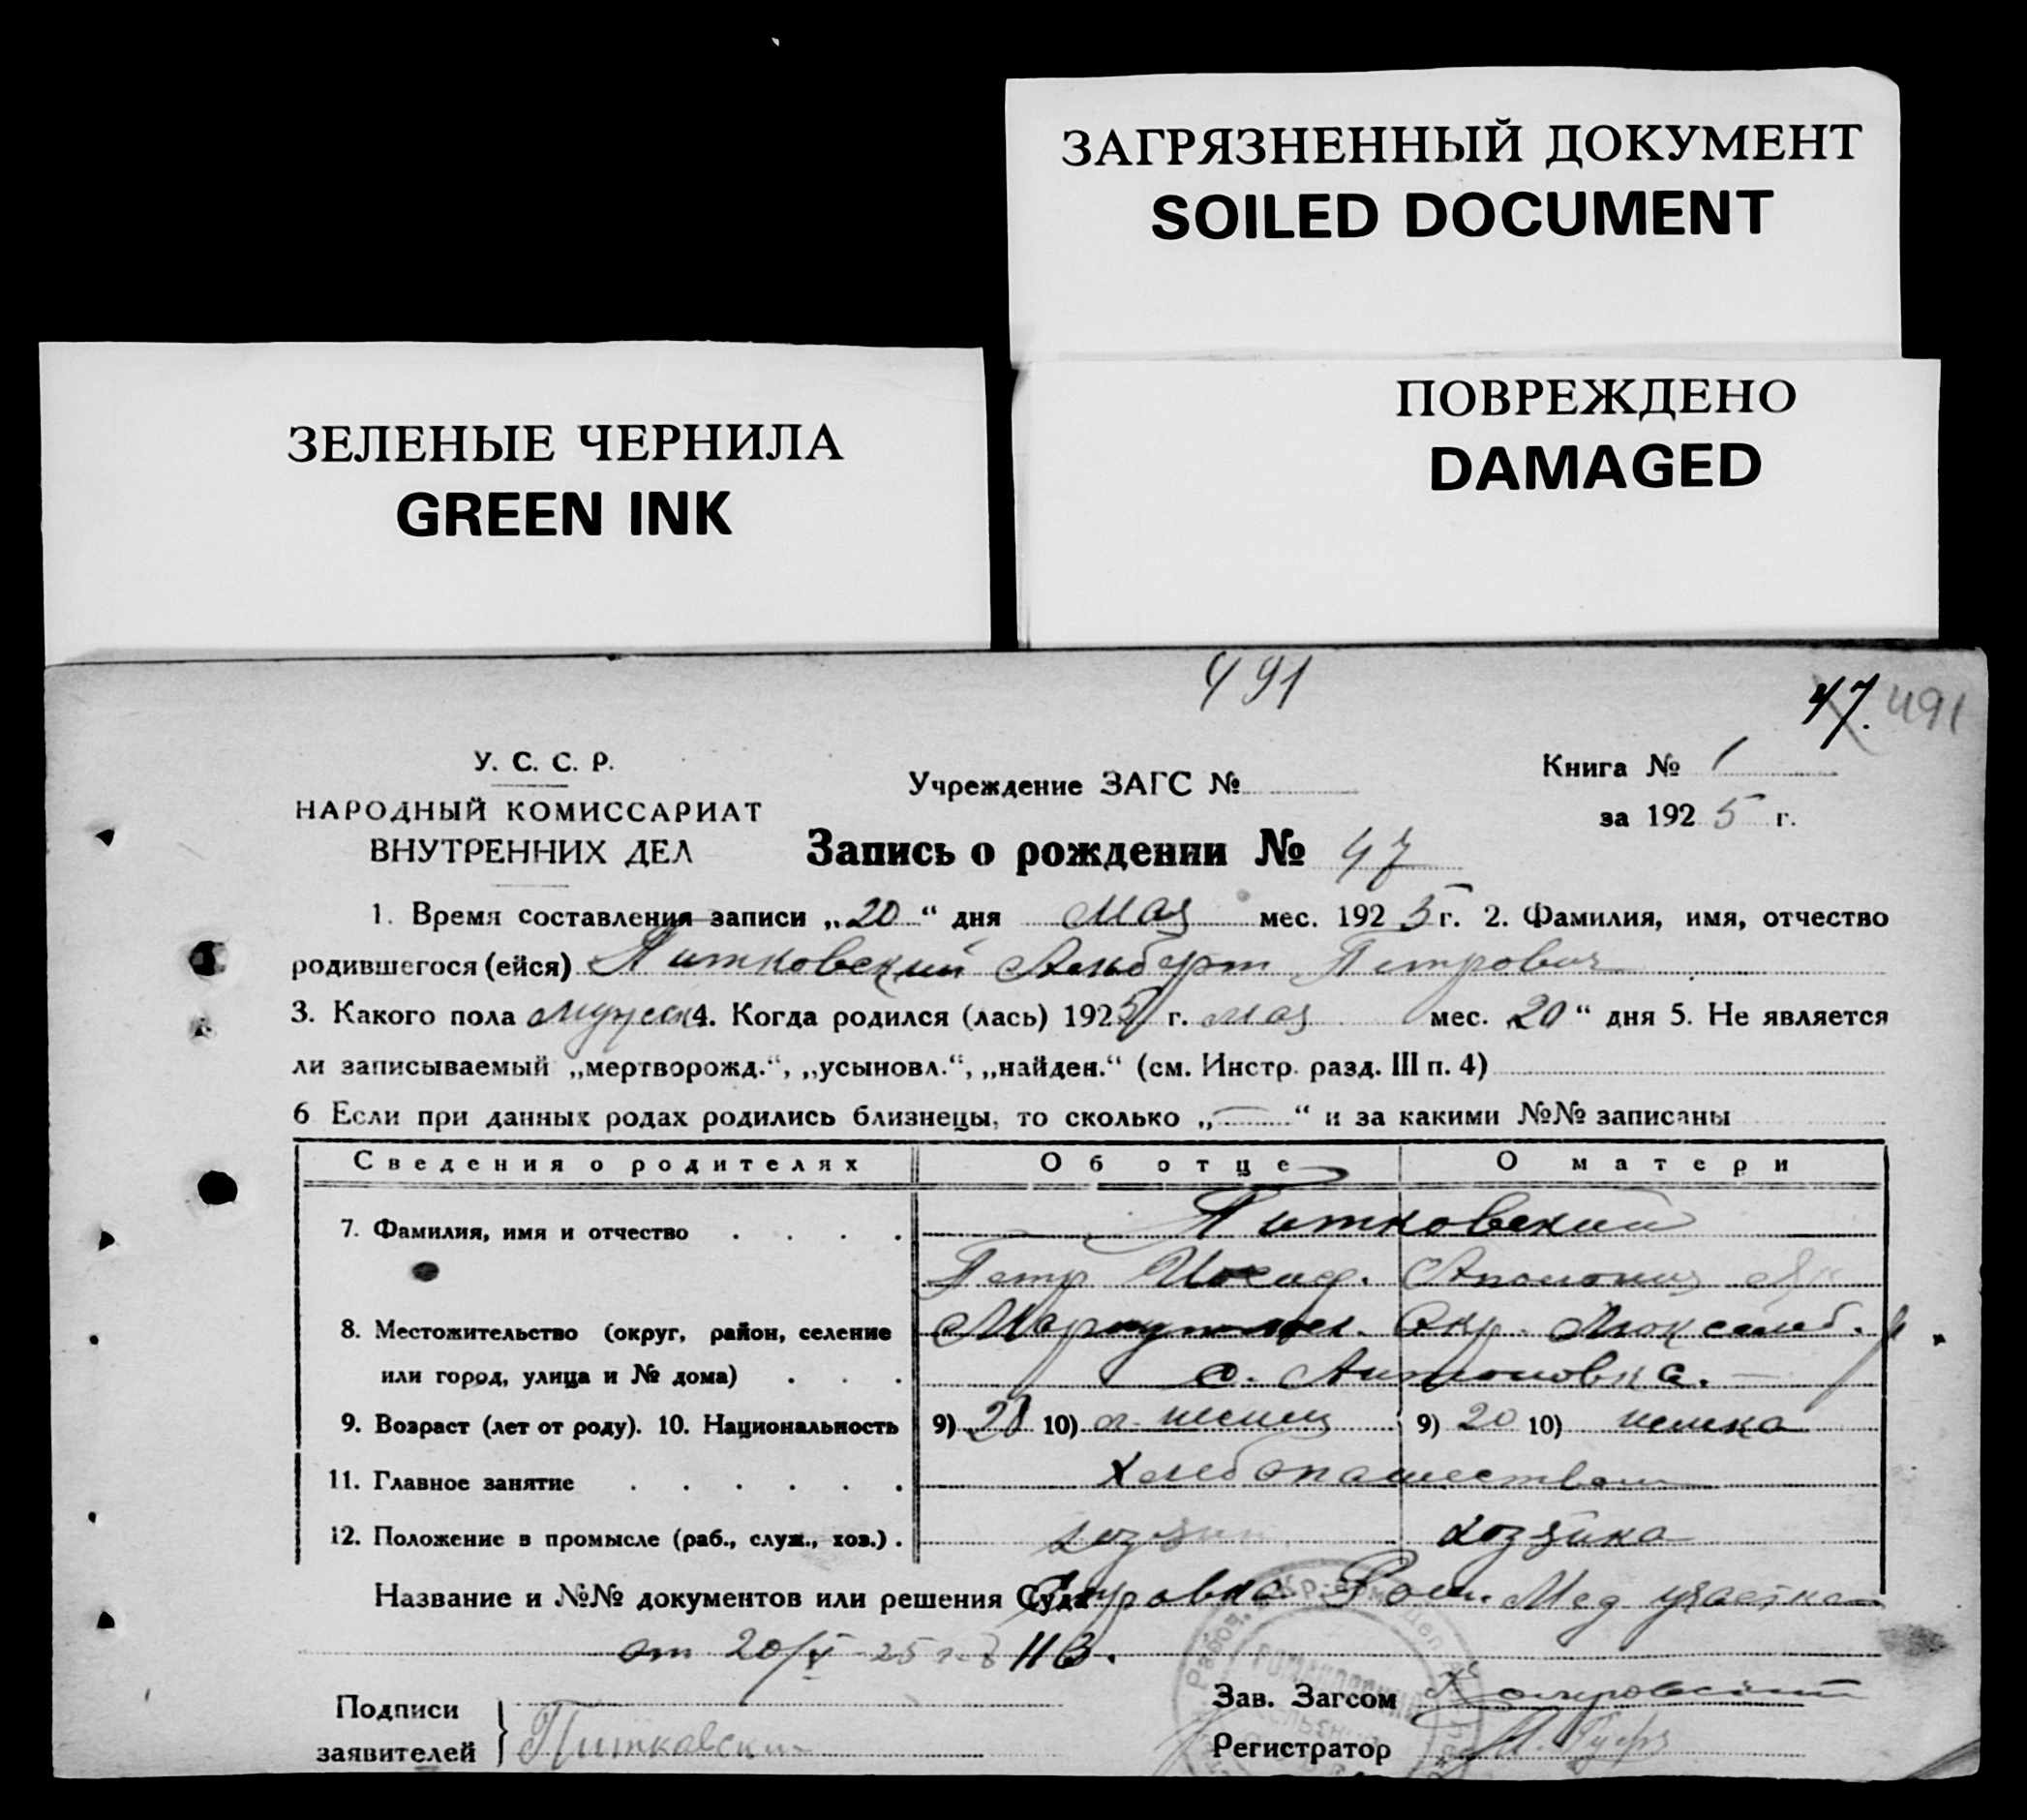 ЗАГРЯЗНЕННЫЙ ДОКУМЕНТ
SOILED DOCUMENT
ЗЕЛЕНЫЕ ЧЕРНИЛА
GREEN INK
ПОВРЕЖДЕНО
DAMAGED
491
47. 491
У. С. С. Р.
НАРОДНЫЙ КОМИССАРИАТ
ВНУТРЕННИХ ДЕЛ
Учреждение ЗАГС №
Книга № 1
за 1925 г.
Запись о рождении № 47
1. Время составления записи „20“ дня Мая мес. 1925 г. 2. Фамилия, имя, отчество
родившегося (ейся) Питковский Альберт Петрович
3. Какого пола мужск 4. Когда родился (лась) 1925 г. мая мес. 20“ дня 5. Не является
ли записываемый „мертворожд.“, „усыновл.“, „найден.“ (см. Инстр. разд. III п. 4)
6 Если при данных родах родились близнецы, то сколько „—“ и за какими №№ записаны
Сведения о родителях Об отце О матери
7. Фамилия, имя и отчество Питковский
Петр Иосиф. Аполония
8. Местожительство (округ, район, селение Мариупольск. Окр. Люксемб. р
или город, улица и № дома) с. Антоновка. —
9. Возраст (лет от роду). 10. Национальность 9) 10) немец 9) 20 10) немка
11. Главное занятие Хлебопашеством
12. Положение в промысле (раб., служ., хоз.) хозяин хозяйка
Название и №№ документов или решения Суда Мед участка
от 20/V 25 г. 113.
Подписи
заявителей } Питковски
Зав. Загсом
Регистратор